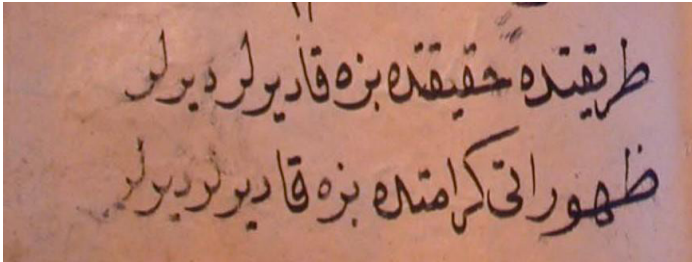 طريقتده حقيقتده بزه قاديرلر ديرلر
ظهور اتى كرامتده بزه قاديرلر ديرلر